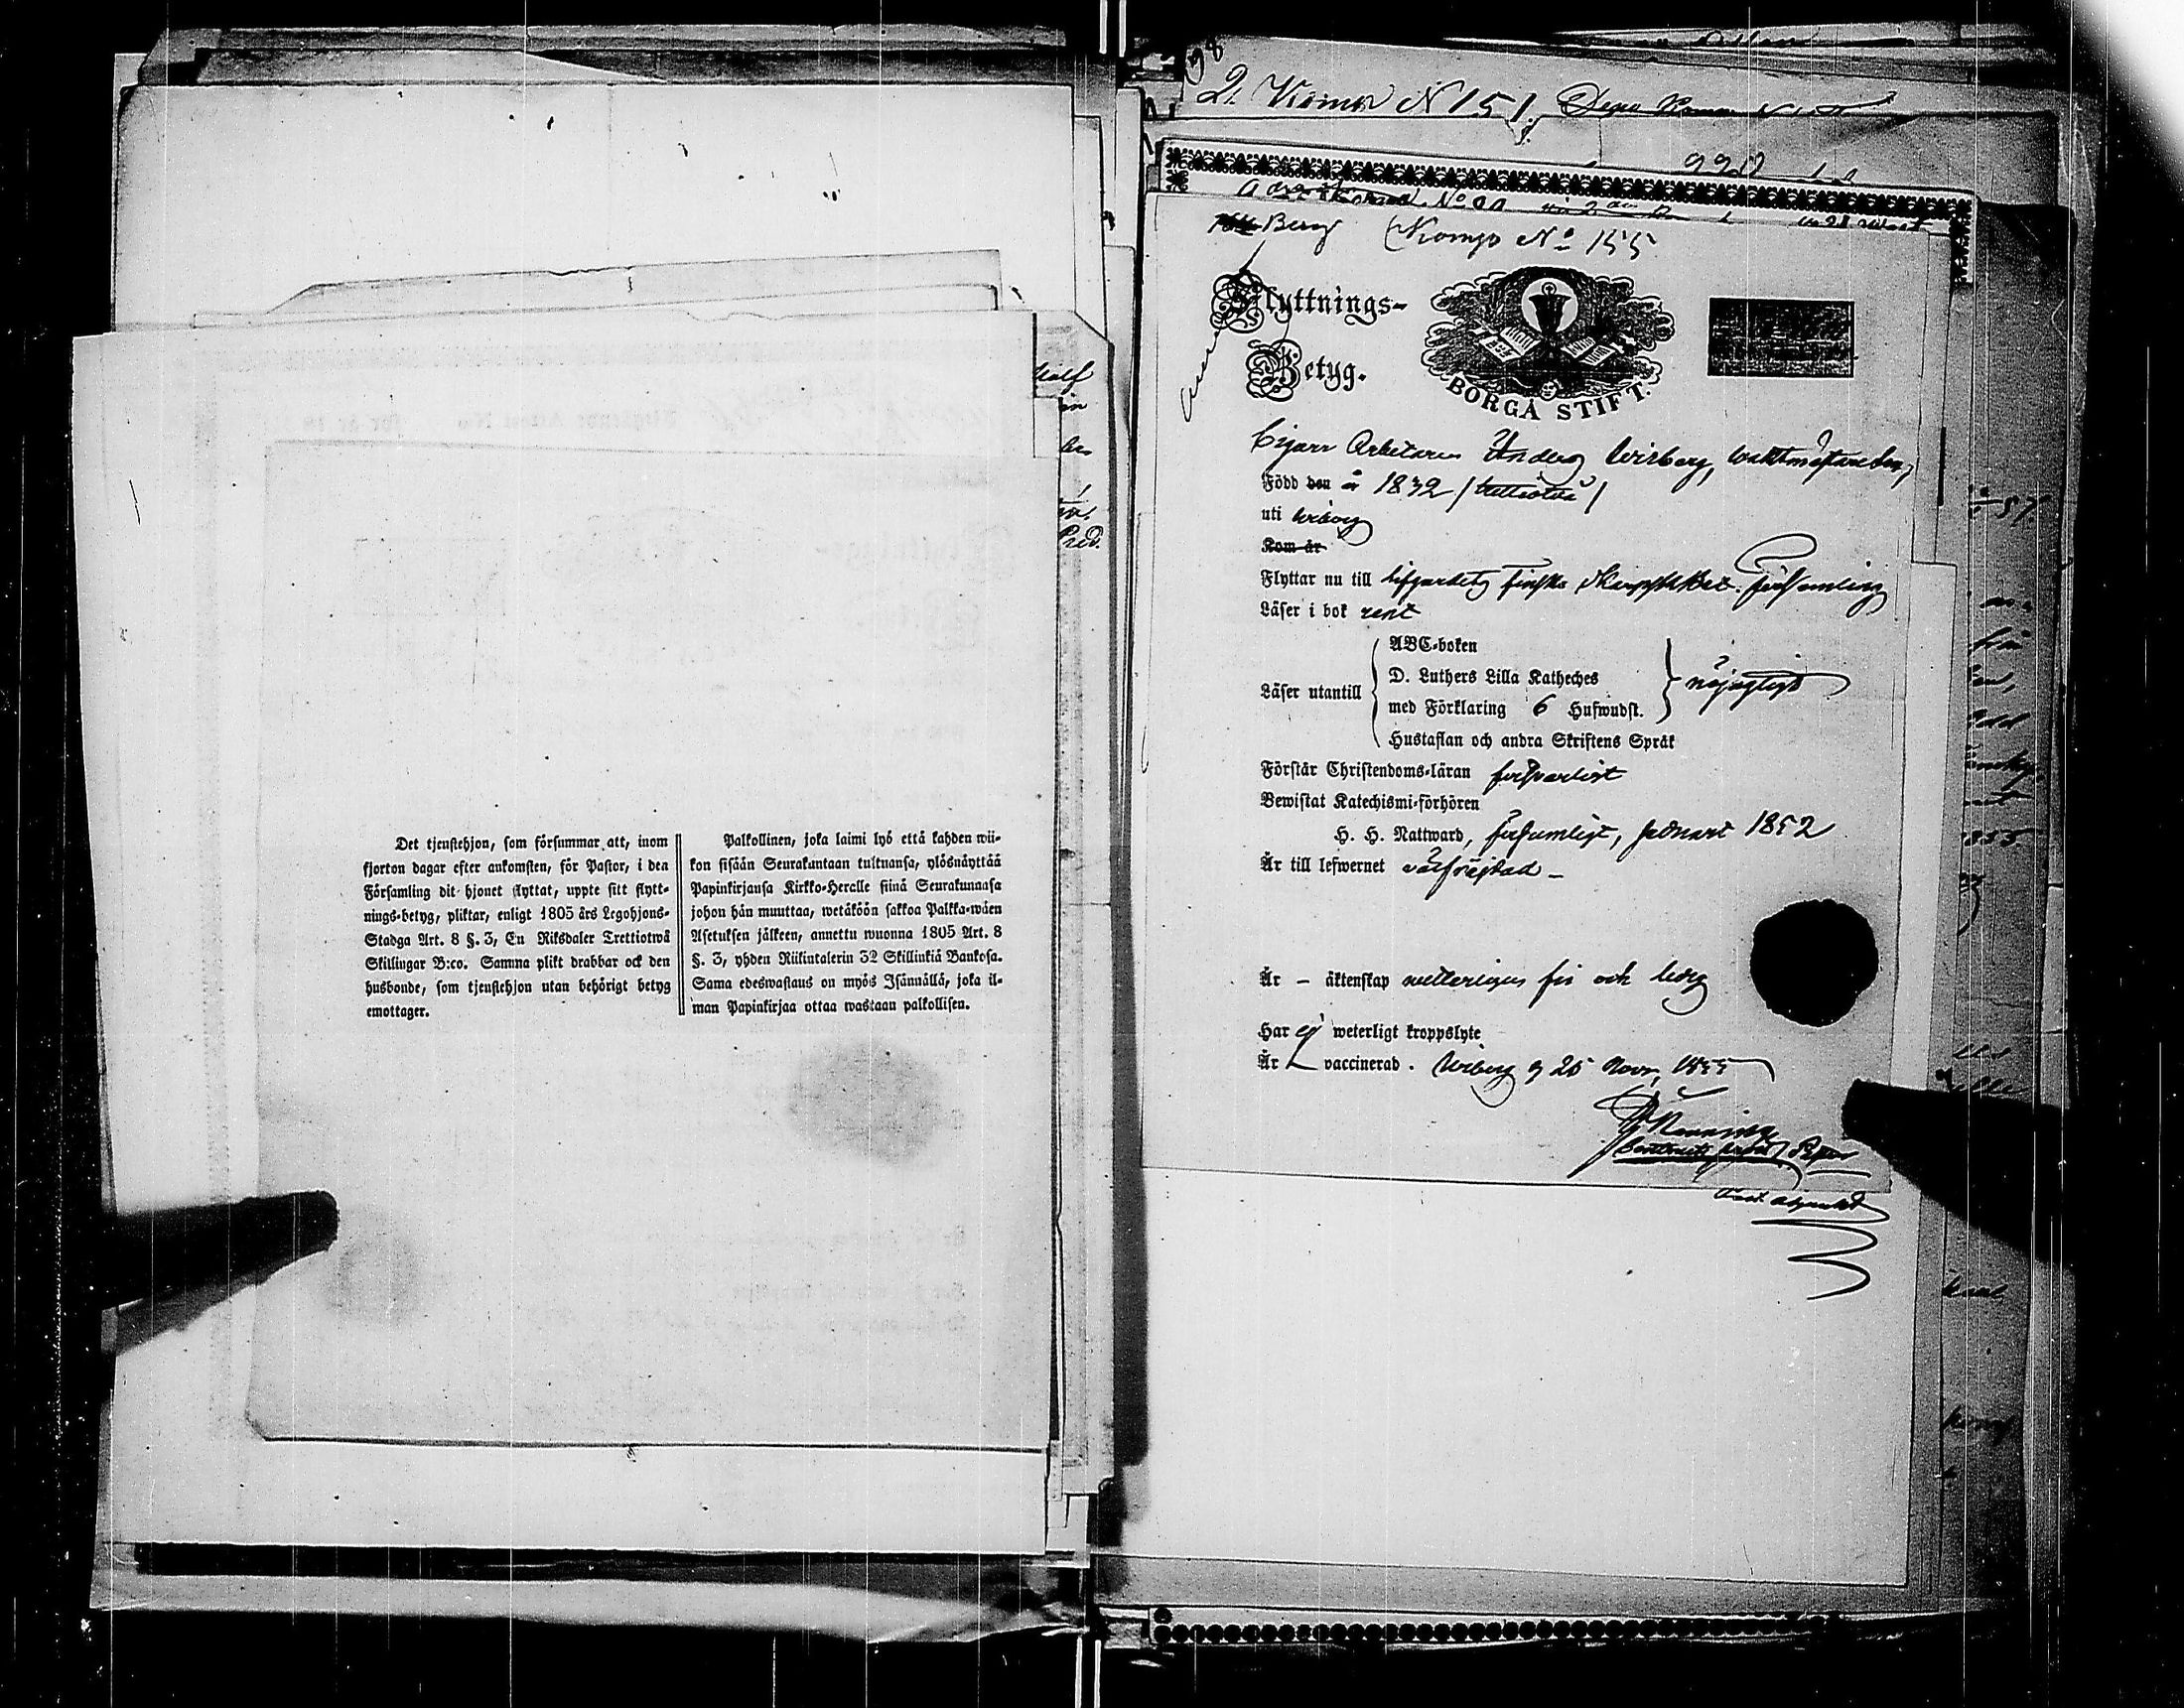 Det tjenstehjon, som försummar att, inom
fjorton dagar efter ankomsten, för Pastor, i den
Församling dit hjonet flyttat, uppte sitt flytt-
nings-betyg, pliktar, enligt 1805 års Legohjons-
Stadga Art. 8 §. 3, En Riksdaler Trettiotwå
Skillingar B:co. Samma plikt drabbar ock den
husbonde, som tjenstehjon utan behörigt betyg
emottager.
Palkollinen, joka laimi lyö että kahden wii-
kon sisään Seurakuntaan tultuansa, ylösnäyttää
Papinkirjansa Kirkko-Heralle siinä Seurakunnasa
johon hän muuttaa, wetäköön sakkoa Palkka-wäen
Asetuksen jälkeen, annettu wuonna 1805 Art. 8
§. 3, yhden Riikintalerin 32 Skillinkiä Bankosa.
Sama edeswastaus on myös Isännällä, joka il-
man Papinkirjaa ottaa wastaan palkollisen.
2. Komp N 151.
Berg Komp No 155
Flyttnings-
Betyg.
BORGÅ STIFT.
Cigarr Arbetaren Anders Wisberg,
Född den år 1832 / trettiotvå /
uti Wiborg
Kom år
Flyttar nu till Lifgardets Finska Skarpsk. Bat. Församling
Läser i bok rent
Läser utantill
ABC-boken
D. Luthers Lilla Katheches
med Förklaring 6 Hufwudst.
Hustaflan och andra Skriftens Språk
nöjagtigt
Förstår Christendoms-läran försvarligt
Bewistat Katechismi-förhören
H. H. Nattward, försumligt, Januari 1852
Är till lefwernet välfrejdad -
Är - äktenskap veterligen fri och ledig
Har ej weterligt kroppslyte
Är vaccinerad. Wiborg d 25 Novr 1855